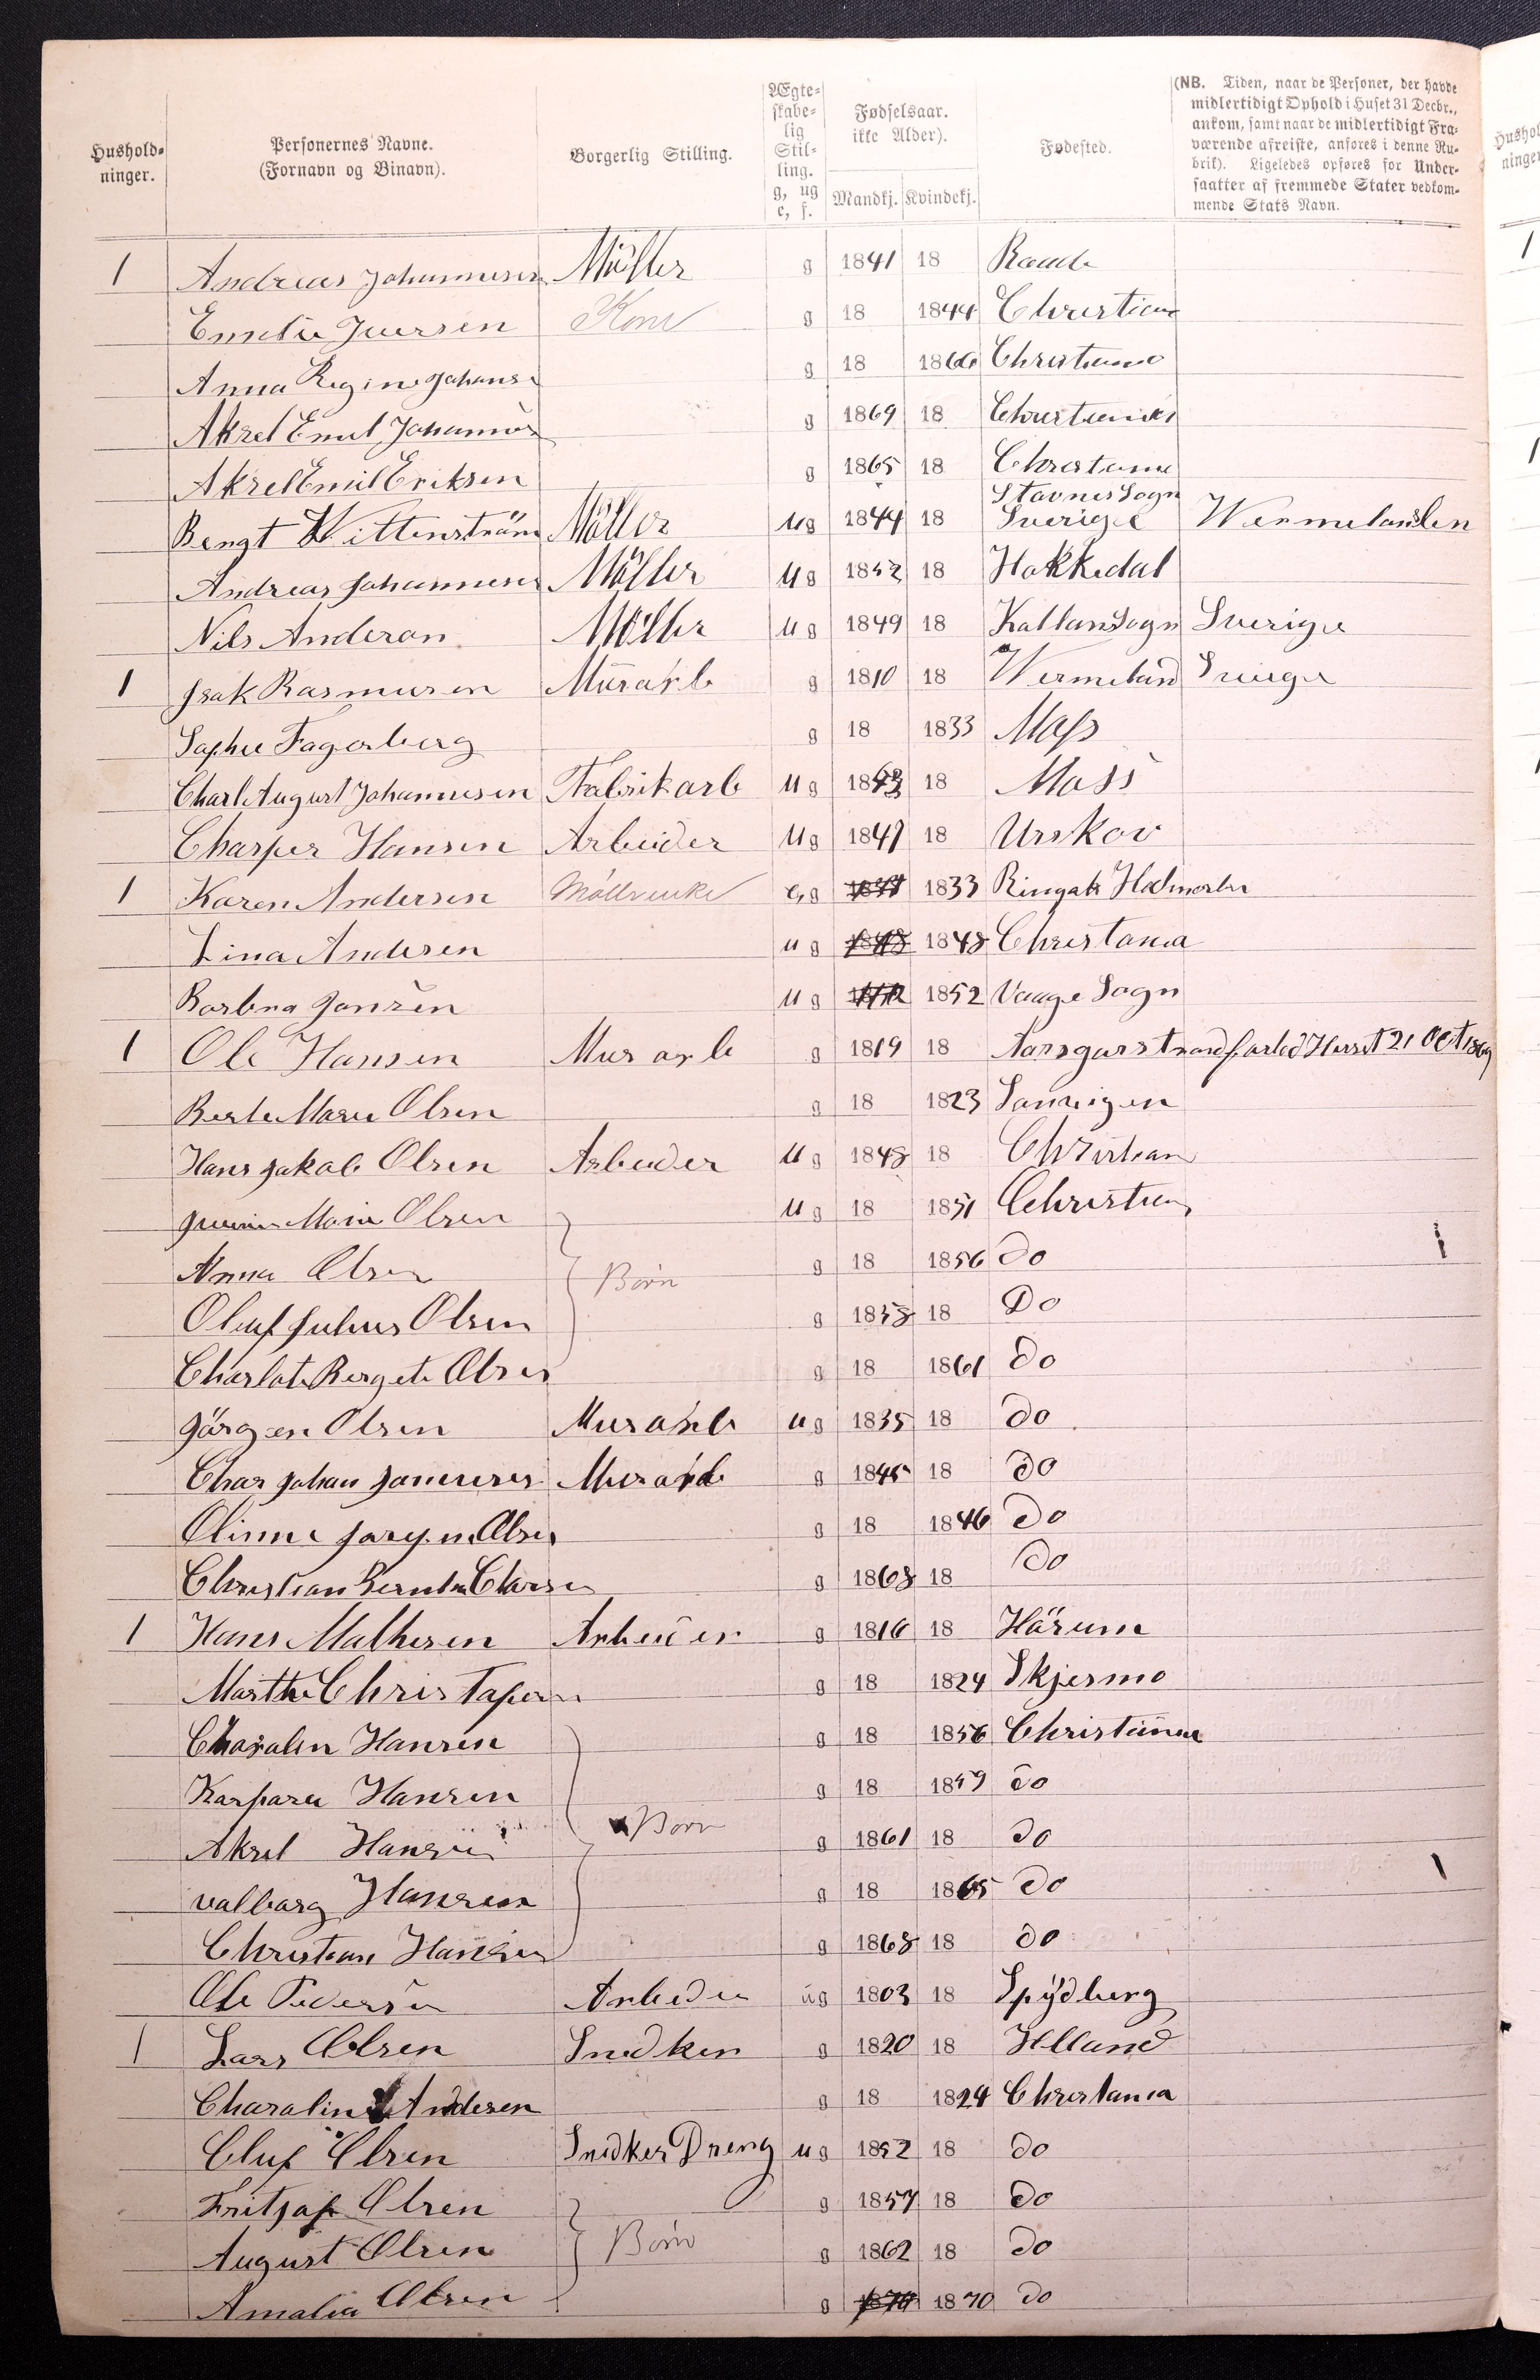 Hushold-ninger. | Personernes Navne. (Fornavn og Binavn). | Borgerlig Stilling. | Ægte-skabe-lig Stil-ling. g, ug e, f. | Fødselsaar. ikke Alder). Mandkj. Kvindekj. | Fødested. | (NB. Tiden, naar de Personer, der havde midlertidigt Ophold i Huset 31 Decbr., ankom, samt naar de midlertidigt Fra-værende afreiste, anføres i denne Ru-brik). Ligeledes opføres for Under-saatter af fremmede Stater vedkom-mende Stats Navn.
1 Andreas Johannesen Möller g 1841 18 Raade
Emelie Iversen Kone g 18 1844 Christian
Anna Regine Johans g 18 1866 Christiania
Aksel Emil Johannes g 1869 18 Christiania
Aksel Emil Eriksen g 1865 18 Christania
Bengt Wittenström Möller ug 1844 18 Stavnes Sogn Sverige Wermelanden
Andreas Johannesen Möller ug 1852 18 Hakkedal
Nils Anderson Möller ug 1849 18 Kallansogn Sverige
1 Isak Rasmusen Murarb g 1810 18 Wermeland Sverige
Sophie Fagerberg g 18 1833 Mass
Charl August Johannesen Fabrikarb ug 1843 18 Moss
Charper Hansen Arbeider ug 1847 18 Urskov
1 Karen Andersen eg 1833 Ringsak
Lina Andersen ug 1848 Christania
Barbra Jansen ug 1852 Vaage Sogn
1 Ole Hansen Mur arb g 1819 18 Aasgarstrand Huset 21 Oct 1869
Berte Marie Olsen g 18 1823 Sannigen
Hans Jakob Olsen Arbeider ug 1848 18 Christian
Marie Olsen ug 18 1851 Christian
Anna Olsen g 18 1856 do
Børn
Oluf Julius Olsen g 1858 18 Do
Charlate Bergete Olsen g 18 1861 do
Jörgen Olsen Murarb ug 1835 18 do
Char Johan Jansen Murarb g 1845 18 do
Olinne Jorgen Olsen g 18 1846 do
Christian Bernt g 1868 18 do
1 Hans Mathesen Arbeider g 1816 18 Härum
Marthe Christafersen g 18 1824 Skjermo
Charalin Hansen g 18 1856 Christiania
Kaspara Hansen g 18 1859 do
Aksel Hansen Born g 1861 18 do
Valbarg Hansen g 18 1865 do
Christian Hansen g 1868 18 do
Ole Pedersen Arbeder ug 1803 18 Spydberg
1 Lars Olsen Snedker g 1820 18 Høland
Charaline Andersen g 18 1824 Christania
Oluf Olsen Snedker Dreng ug 1852 18 do
Fritjaf Olsen g 1857 18 do
August Olsen Børn g 1862 18 do
Amalia Olsen g 1870 do